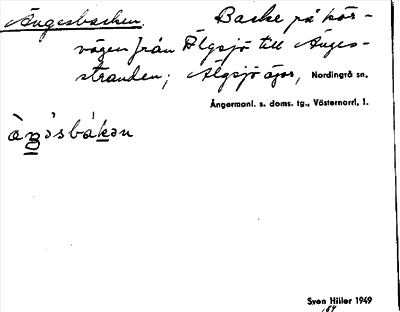 Ängesbacken. Backe på kör-
vägen från Älgsjö till Änges-
stranden; Älgsjö ägor, Nordingrå sn,
Ångermanl. s. doms. tg., Västernorrl. l.
Sven Hiller 1949